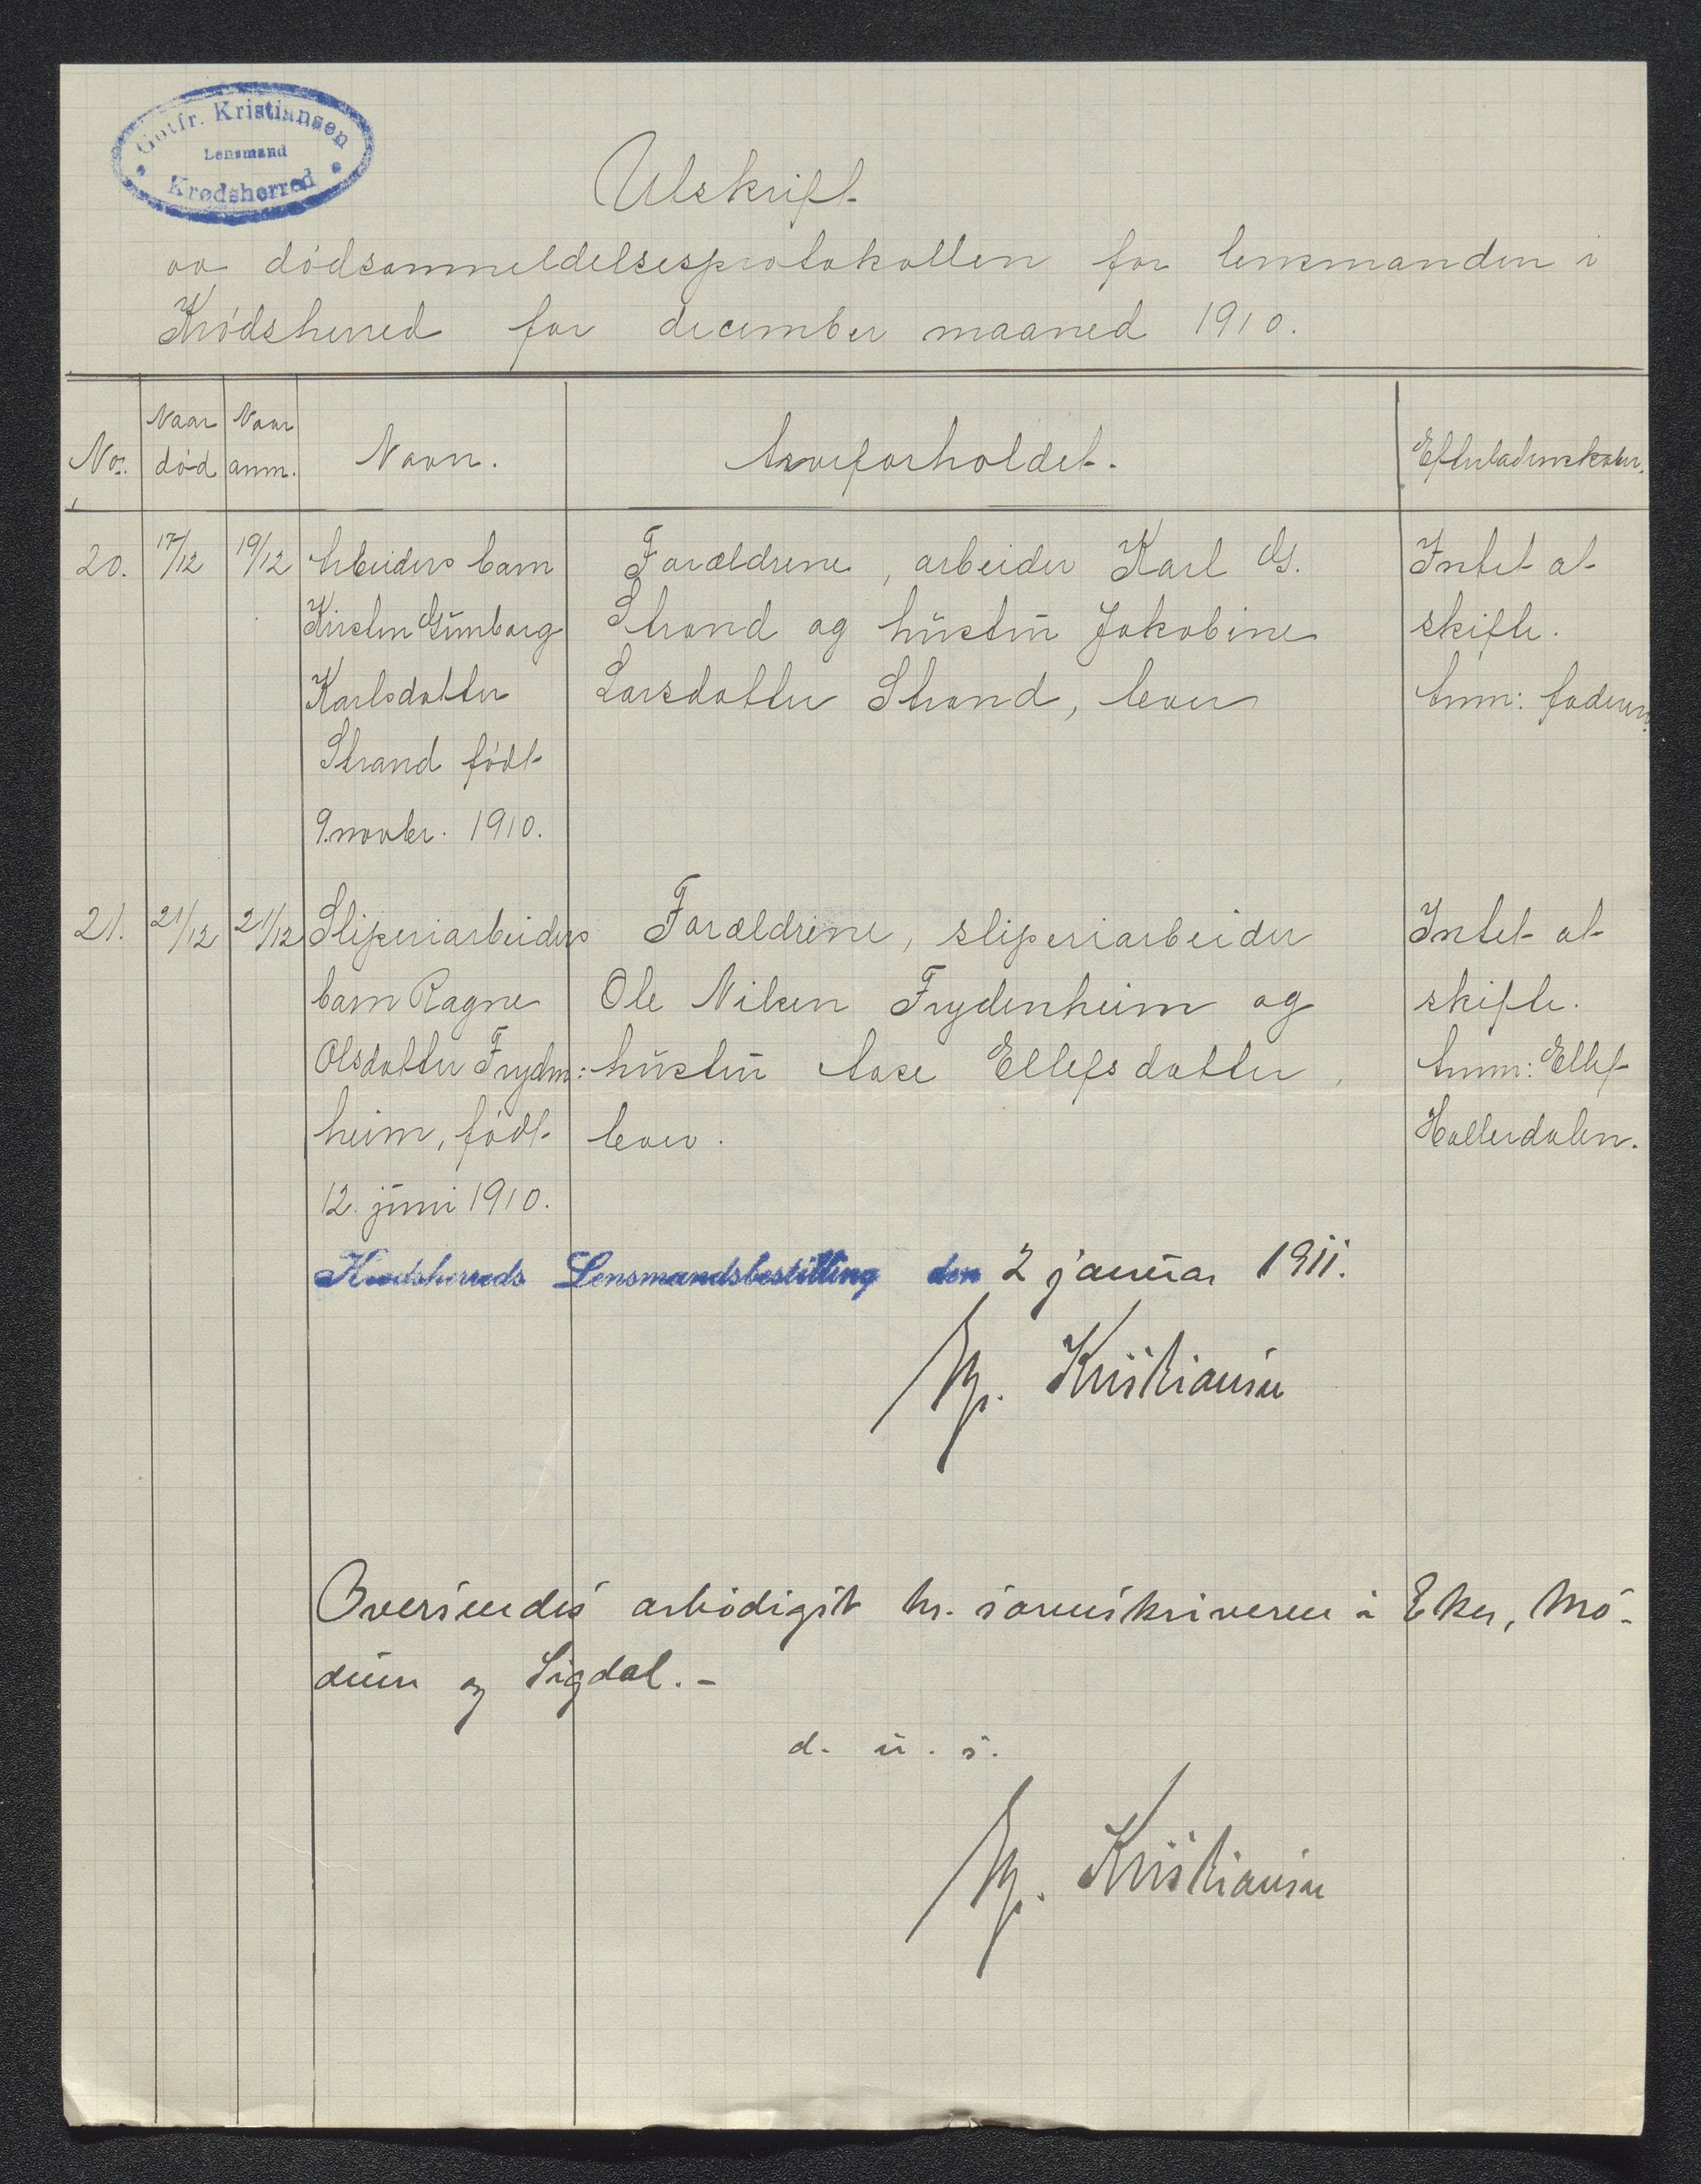 Gotfr. Kristiansen
Lensmand
Krødsherred
Utskrift
av dødsanmeldelsesprotokollen for lensmanden i
Krødsherred for december maaned 1910.
No. Naar død Naar anm. Navn. Arveforholdet. Efterladenskaber.
20. 17/12 19/12 Arbeiders barn Forældrene, arbeider Karl G. Intet at
Kirsten Gunborg Strand og hustru Jakobine skifte.
Karlsdatter Larsdatter Strand, lever Anm: faderen.
Strand født
9. novbr. 1910.
21. 21/12 21/12 Sliperiarbeiders Forældrene, sliperiarbeider Intet at
barn Ragne Ole Nilsen Frydenheim og skifte.
Olsdatter Fryden: hustru Aase Ellefsdatter, Anm: Ellef
heim, født lever. Hallerdalen.
12. juni 1910.
Krødsherreds Lensmandsbestilling den 2 januar 1911.
G. Kristiansen
Oversendes ærbødigst hr. sorenskriveren i Eker, Mo-
dum og Sigdal.-
d. u. s.
G. Kristiansen